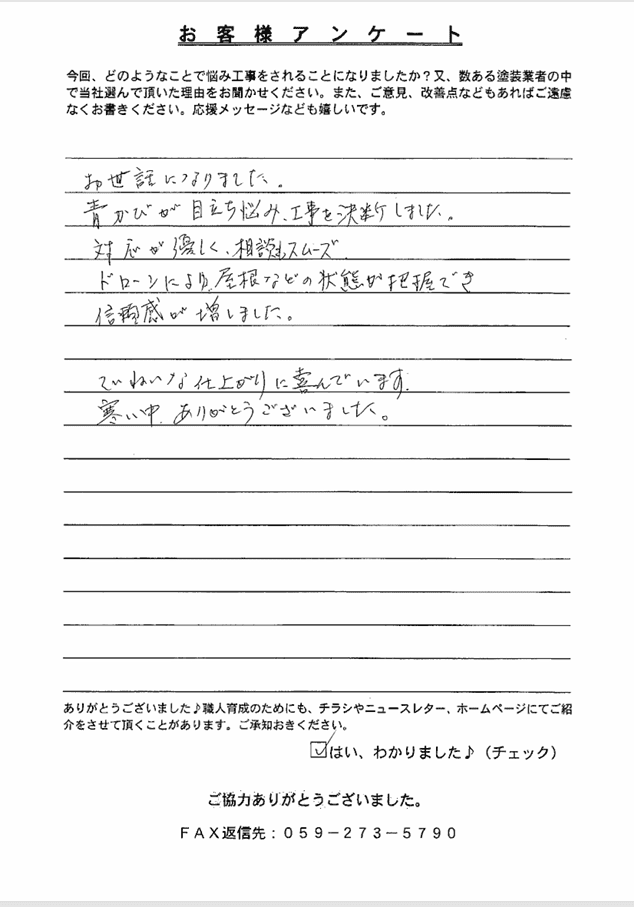 お客様アンケート
今回、どのようなことで悩み工事をされることになりましたか？又、数ある塗装業者の中
で当社選んで頂いた理由をお聞かせください。また、ご意見、改善点などもあればご遠慮
なくお書きください。応援メッセージなども嬉しいです。
お世話になりました。
青かびが目立ち悩み、工事を決断しました。
対応が優しく、相談もスムーズ
ドローンにより、屋根などの状態が把握でき
信頼感が増しました。
ていねいな仕上がりに喜んでいます。
寒い中、ありがとうございました。
ありがとうございました♪職人育成のためにも、チラシやニュースレター、ホームページにてご紹
介をさせて頂くことがあります。ご承知おきください。
☑はい、わかりました♪（チェック）
ご協力ありがとうございました。
ＦＡＸ返信先：０５９－２７３－５７９０